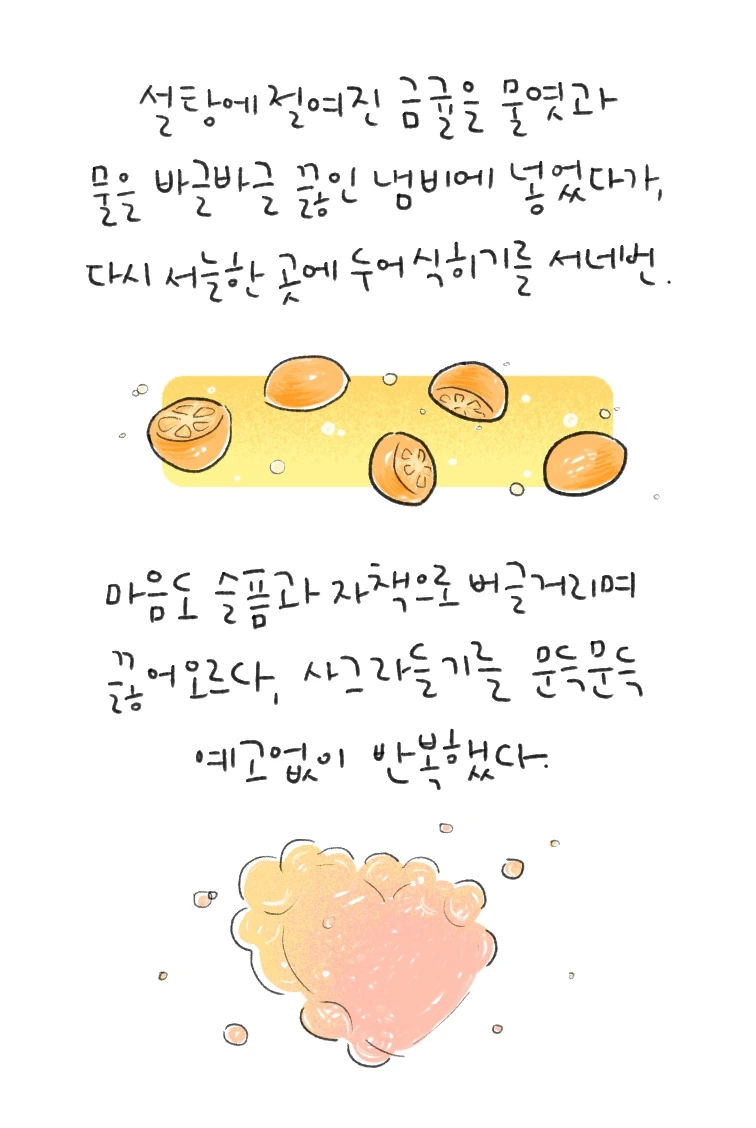 설탕에 절여진 금귤을 물엿과
물을 바글바글 끓인 냄비에 넣었다가,
다시 서늘한 곳에 두어 식히기를 서네번.
마음도 슬픔과 자책으로 버글거리며
끓어오르다, 사그라들기를 문득문득
예고없이 반복했다.